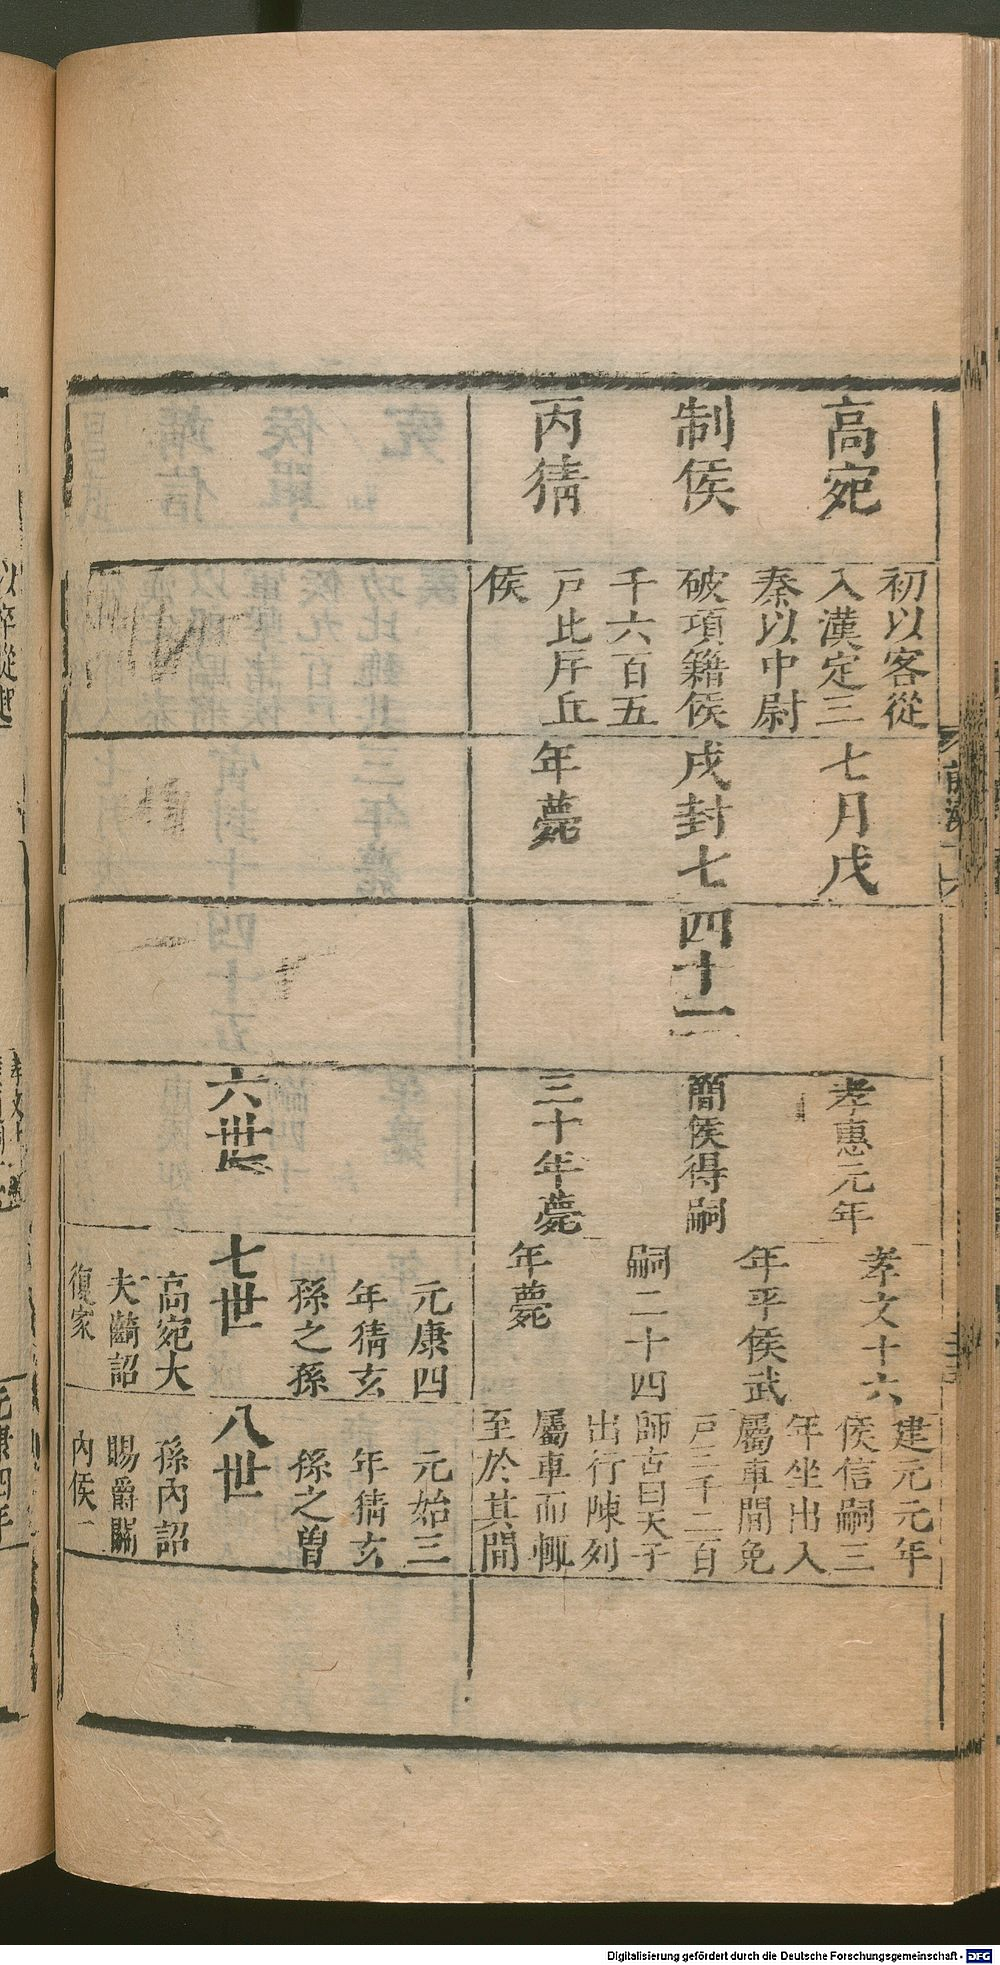 高宛
制侯
丙猜
初以客從
入漢定三
秦以中尉
破項籍侯
千六百五
戸比斥丘
侯
七月戊
戌封七
年薨
四十一
孝惠元年
簡侯得嗣
三十年薨
孝文十六
年平侯武
嗣二十四
年薨
建元元年
侯信嗣三
年坐出入
屬車間免
戸三千二百
師古曰天子
出行陳列
屬車而輒
至於其間
六世
七世
元康四
年猜玄
孫之孫
高宛大
夫齮詔
復家
八世
元始三
年猜玄
孫之曽
孫内詔
賜爵關
内侯
Digitalisierung gefördert durch die Deutsche Forschungsgemeinschaft - DFG